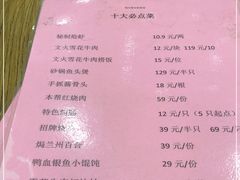 十大必点菜
秘制烩虾 10.9 元/两
文火雪花牛肉 12 元/块 119 元/10
文火雪花牛肉捞饭 15 元/位
砂锅鱼头煲 129 元/半只
手抓酱骨头 18 元/根
本帮红烧肉 59 元/份
特色 12 元/只(5 只起点)
招牌 39 元/半只 69 元/
焗兰州百合 39 元/份
鸭血银鱼小馄饨 29 元/份